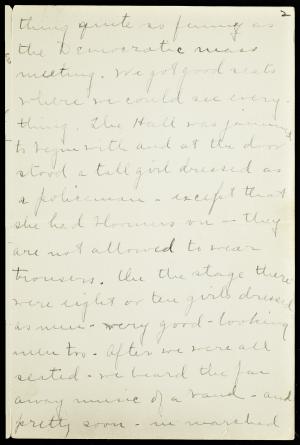 2
thing quite so funny as
the Democratic mass
meeting. We got good seats
where we could see every-
thing. The Hall was jammed
to begin with and at the door
stood a tall girl dressed as
a policeman - except that
she had bloomers on - they
are not allowed to wear
trousers. On the stage there
were eight or ten girls dressed
as men - very good-looking
men too - After we were all
seated - we heard the far
away music of a band - and
pretty soon - in marched